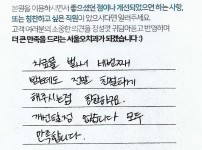 본원을 이용하시면서 좋으셨던 점이나 개선되었으면 하는 사항,
또는 칭찬하고 싶은 직원이 있으시다면 알려주세요.
고객 여러분의 소중한 의견을 정성껏 귀담아듣고 반영하여
더 큰 만족을 드리는 서울오치과가 되겠습니다 :)
치료를 받으러 네번째
왔는데도 정말 친절하게
해주시는점 감사하고요.
개선되는점 없습니다 모두
만족합니다.